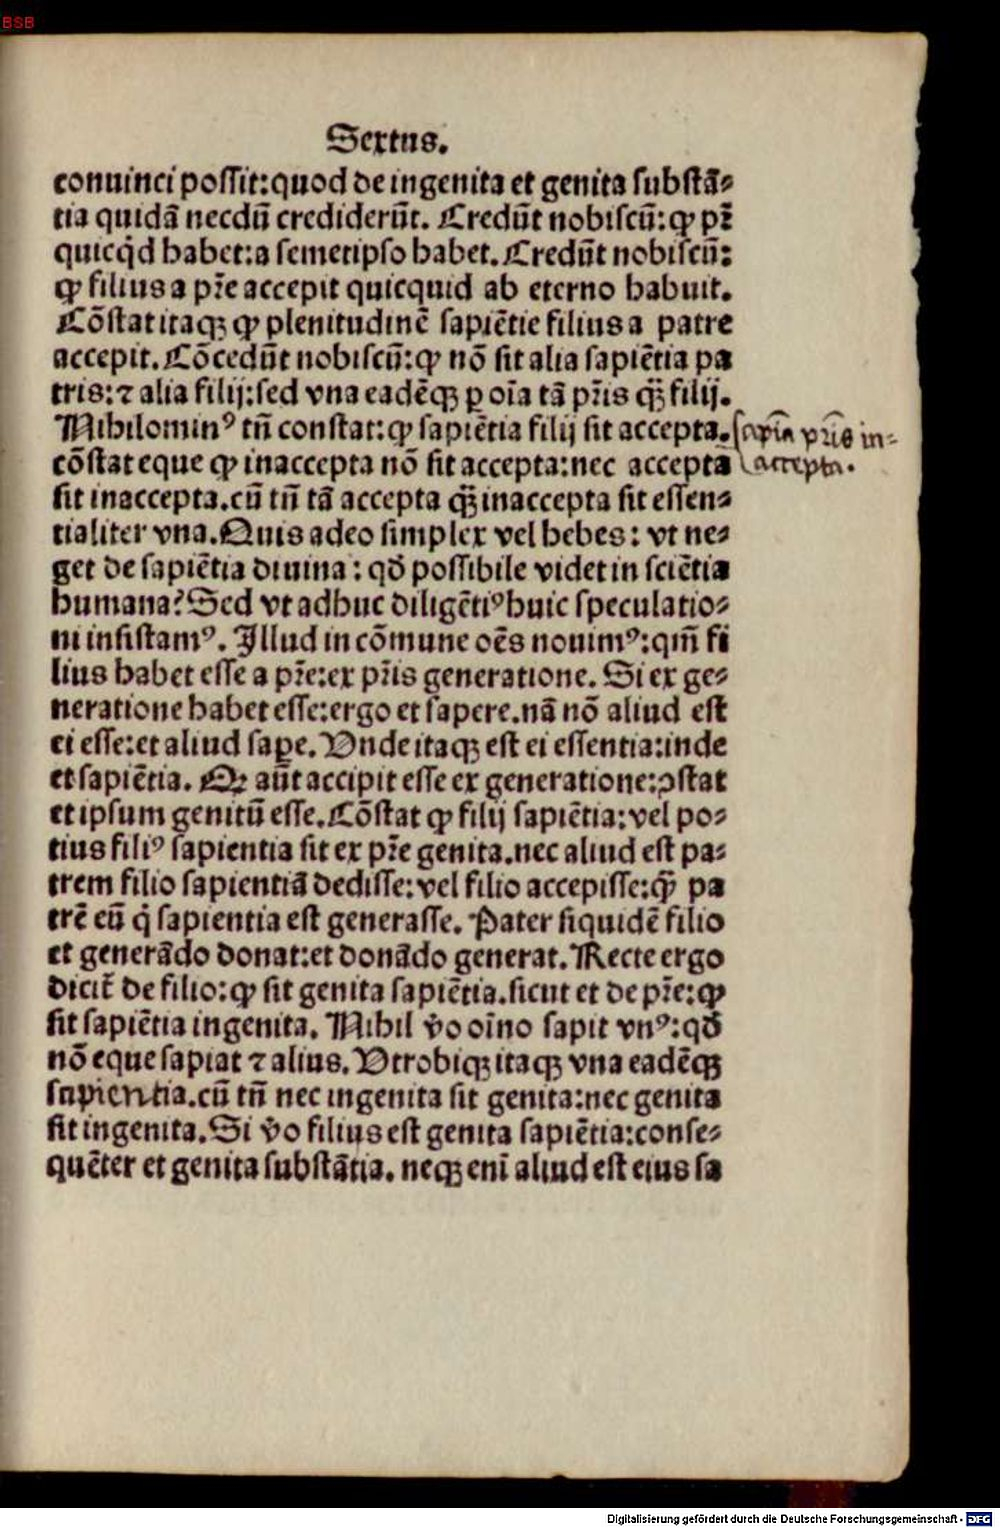 BSB
Sextus.
conuinci possit:quod de ingenita et genita substā⸗
tia quidā necdū crediderūt. Credūt nobiscū:ꝙ pr̄
quicq̇d habet:a semetipso habet. Credūt nobiscū:
ꝙ filius a pr̄e accepit quicquid ab eterno habuit.
Cōstat itaqꝫ ꝙ plenitudinē sapiētie filius a patre
accepit. Cōcedūt nobiscū:ꝙ nō sit alia sapiētia pa
tris:⁊ alia filij:sed vna eadēqꝫ ꝑ oīa tā pr̄is q̄ꝫ filij.
Nihilominꝰ tn̄ constat:ꝙ sapiētia filij sit accepta.
cōstat eque ꝙ inaccepta nō sit accepta:nec accepta
sapīa pr̄is in⸗
accepta.
sit inaccepta.cū tn̄ tā accepta q̄ꝫ inaccepta sit essen⸗
tialiter vna.Quis adeo simplex vel hebes: vt ne⸗
get de sapiētia diuina: qđ possibile videt in sciētia
humana?Sed vt adhuc diligētiꝰ huic speculatio⸗
ni insistamꝰ. Illud in cōmune oēs nouimꝰ:qm̄ fi
lius habet esse a pr̄e:ex pr̄is generatione. Si ex ge⸗
neratione habet esse:ergo et sapere.nā nō aliud est
ei esse:et aliud saꝑe. Vnde itaqꝫ est ei essentia:inde
et sapiētia. Qꝫ aūt accipit esse ex generatione:ꝯstat
et ipsum genitū esse.Cōstat ꝙ filij sapiētia:vel po⸗
tius filiꝰ sapientia sit ex pr̄e genita.nec aliud est pa⸗
trem filio sapientiā dedisse:vel filio accepisse:q̄ꝫ pa
trē eū q̇ sapientia est generasse. Pater siquidē filio
et generādo donat:et donādo generat. Recte ergo
dicit̄ de filio:ꝙ sit genita sapiētia.sicut et de pr̄e:ꝙ
sit sapiētia ingenita. Nihil v̄o oīno sapit vnꝰ:qđ
nō eque sapiat ⁊ alius. Vtrobiqꝫ itaqꝫ vna eadēqꝫ
sapientia.cū tn̄ nec ingenita sit genita:nec genita
sit ingenita. Si v̄o filius est genita sapiētia:conse⸗
quēter et genita substātia. neqꝫ enī aliud est eius sa
Digitalisierung gefördert durch die Deutsche Forschungsgemeinschaft - DFG